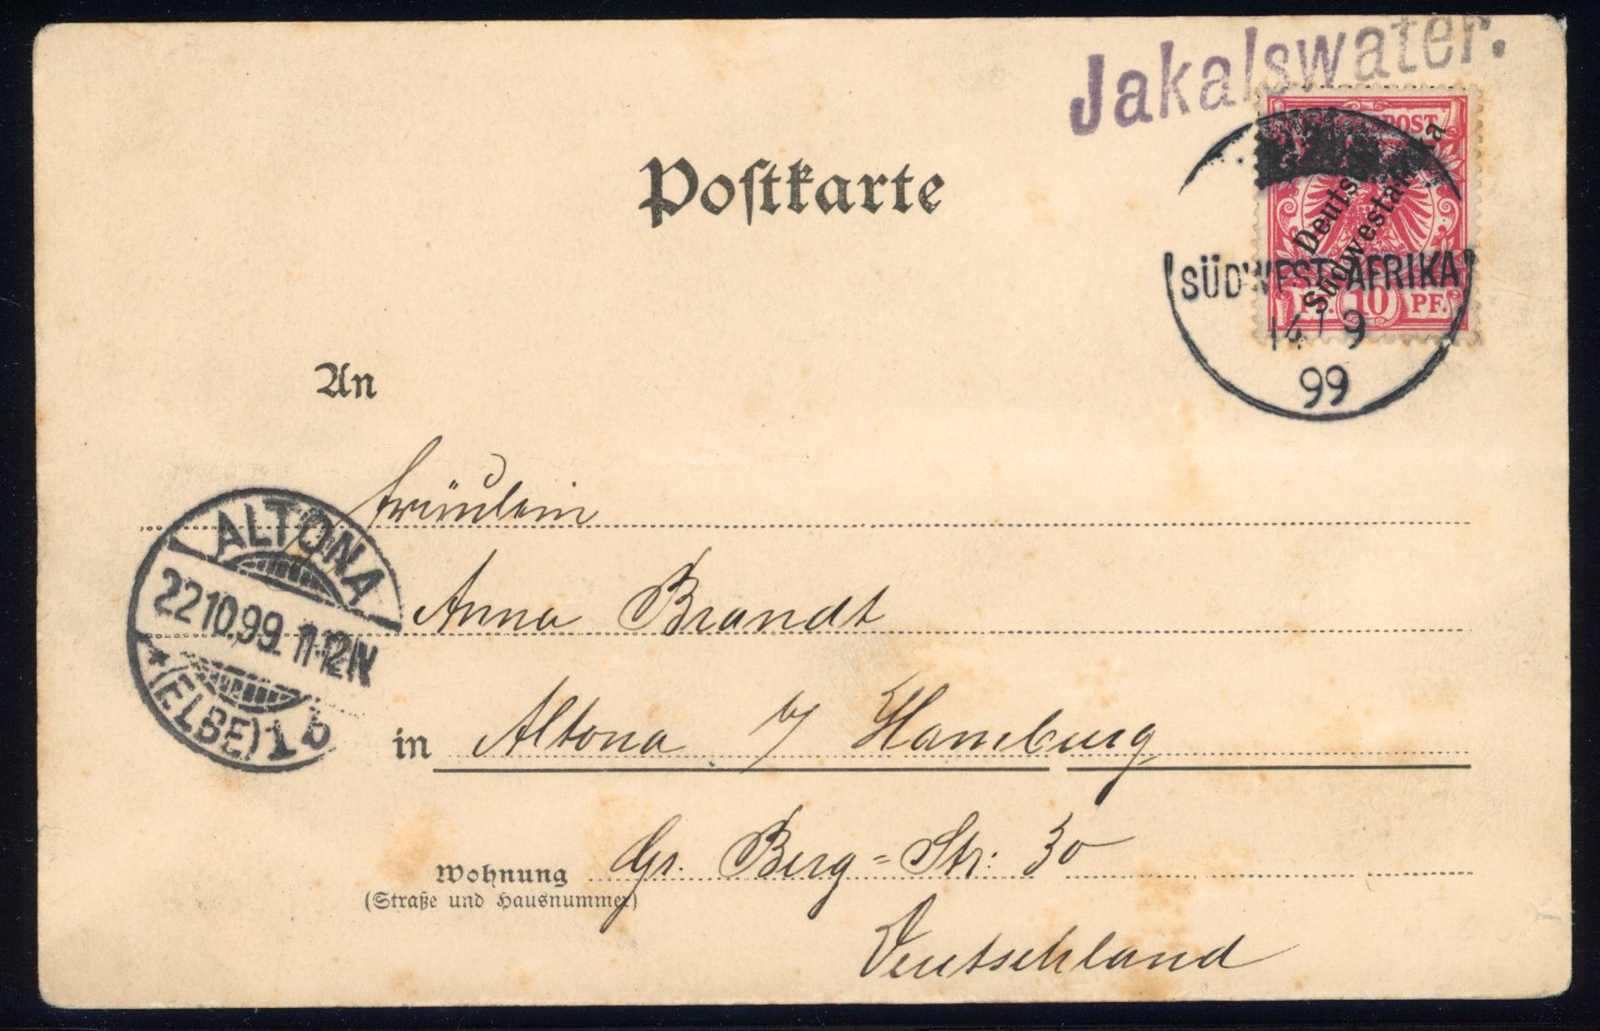 Jakalswater.
Postkarte
POST
Deuts
Südwesta
10 PF.
SÜDWEST-AFRIKA
14/9
99
An
Fräulein
Anna Brandt
in Altona b/ Hamburg
Wohnung Gr. Berg=Str: 30
(Straße und Hausnummer)
Deutschland
ALTONA
22.10.99. 11-12N
*(ELBE) 1 b